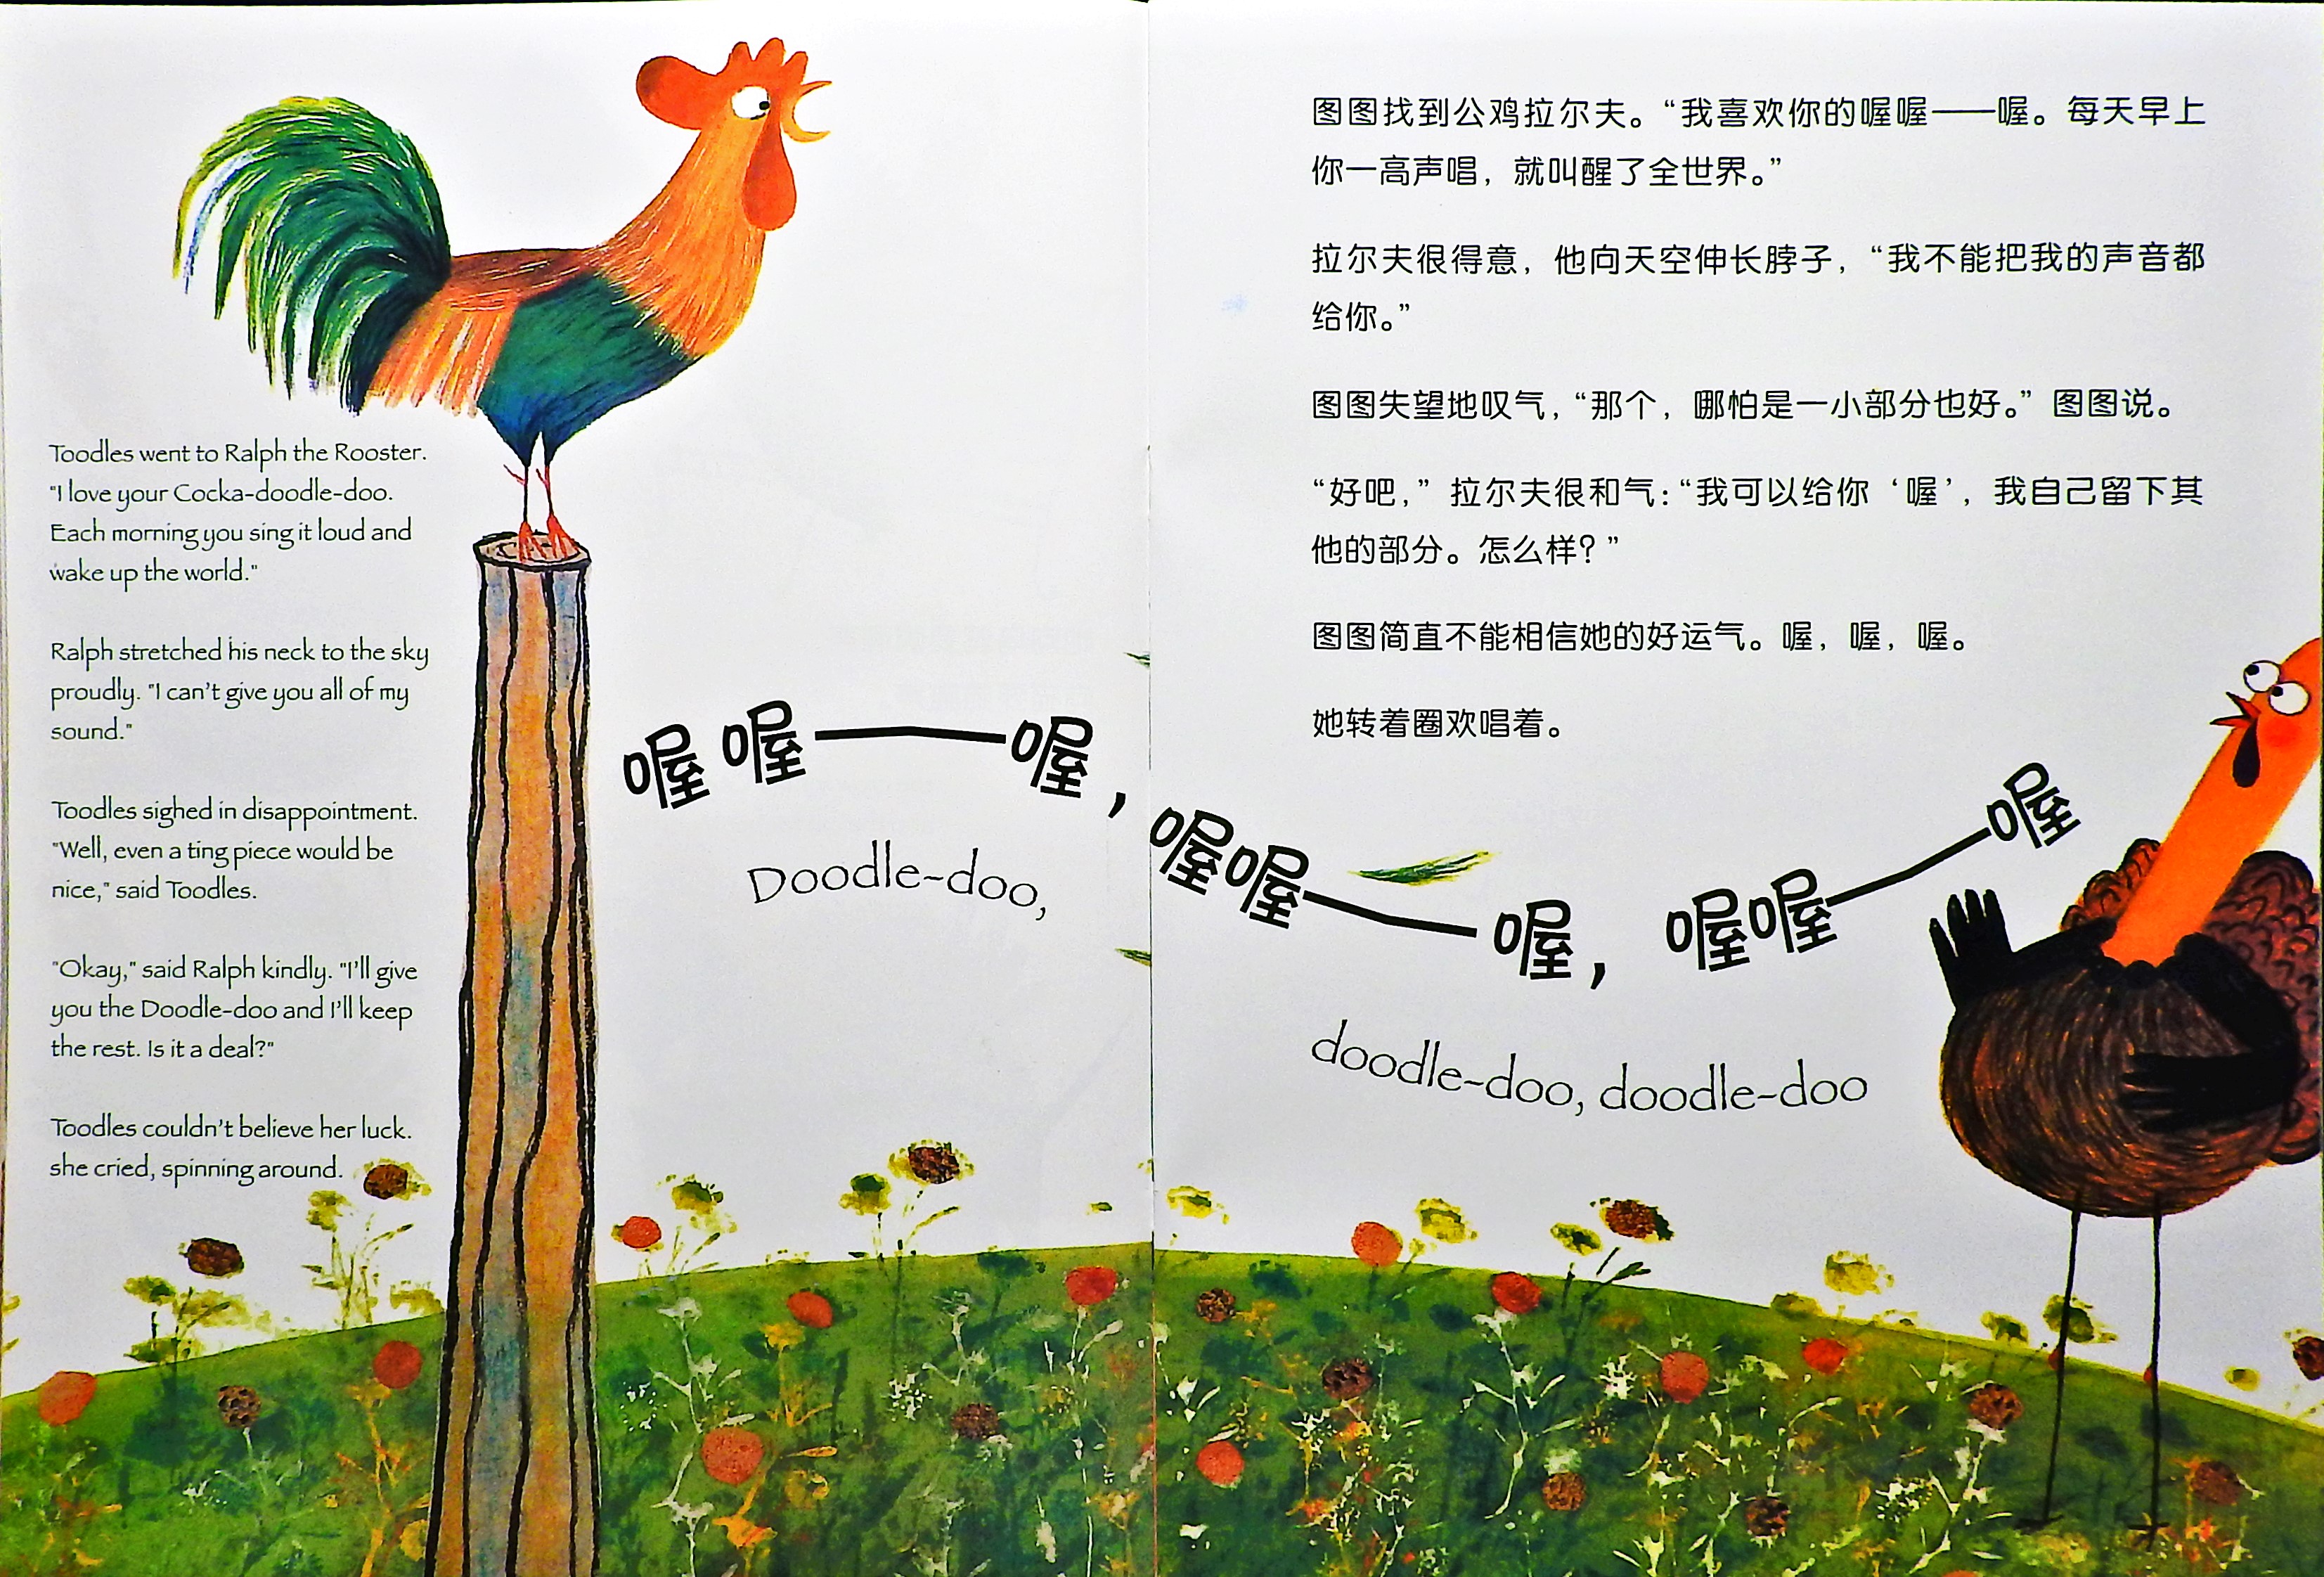 Toodles went to Ralph the Rooster.
"I love your Cocka-doodle-doo.
Each morning you sing it loud and
wake up the world."
Ralph stretched his neck to the sky
proudly. "I can't give you all of my
sound."
Toodles sighed in disappointment.
"Well, even a ting piece would be
nice," said Toodles.
"Okay," said Ralph kindly. "I'll give
you the Doodle-doo and I'll keep
the rest. Is it a deal?"
Toodles couldn't believe her luck.
she cried, spinning around.
图图找到公鸡拉尔夫。“我喜欢你的喔喔——喔。每天早上
你一高声唱，就叫醒了全世界。”
拉尔夫很得意，他向天空伸长脖子，“我不能把我的声音都
给你。”
图图失望地叹气，“那个，哪怕是一小部分也好。”图图说。
“好吧，”拉尔夫很和气：“我可以给你‘喔’，我自己留下其
他的部分。怎么样？”
图图简直不能相信她的好运气。喔，喔，喔。
她转着圈欢唱着。
喔喔——喔，喔喔——喔，喔喔——喔
Doodle-doo,
doodle-doo, doodle-doo